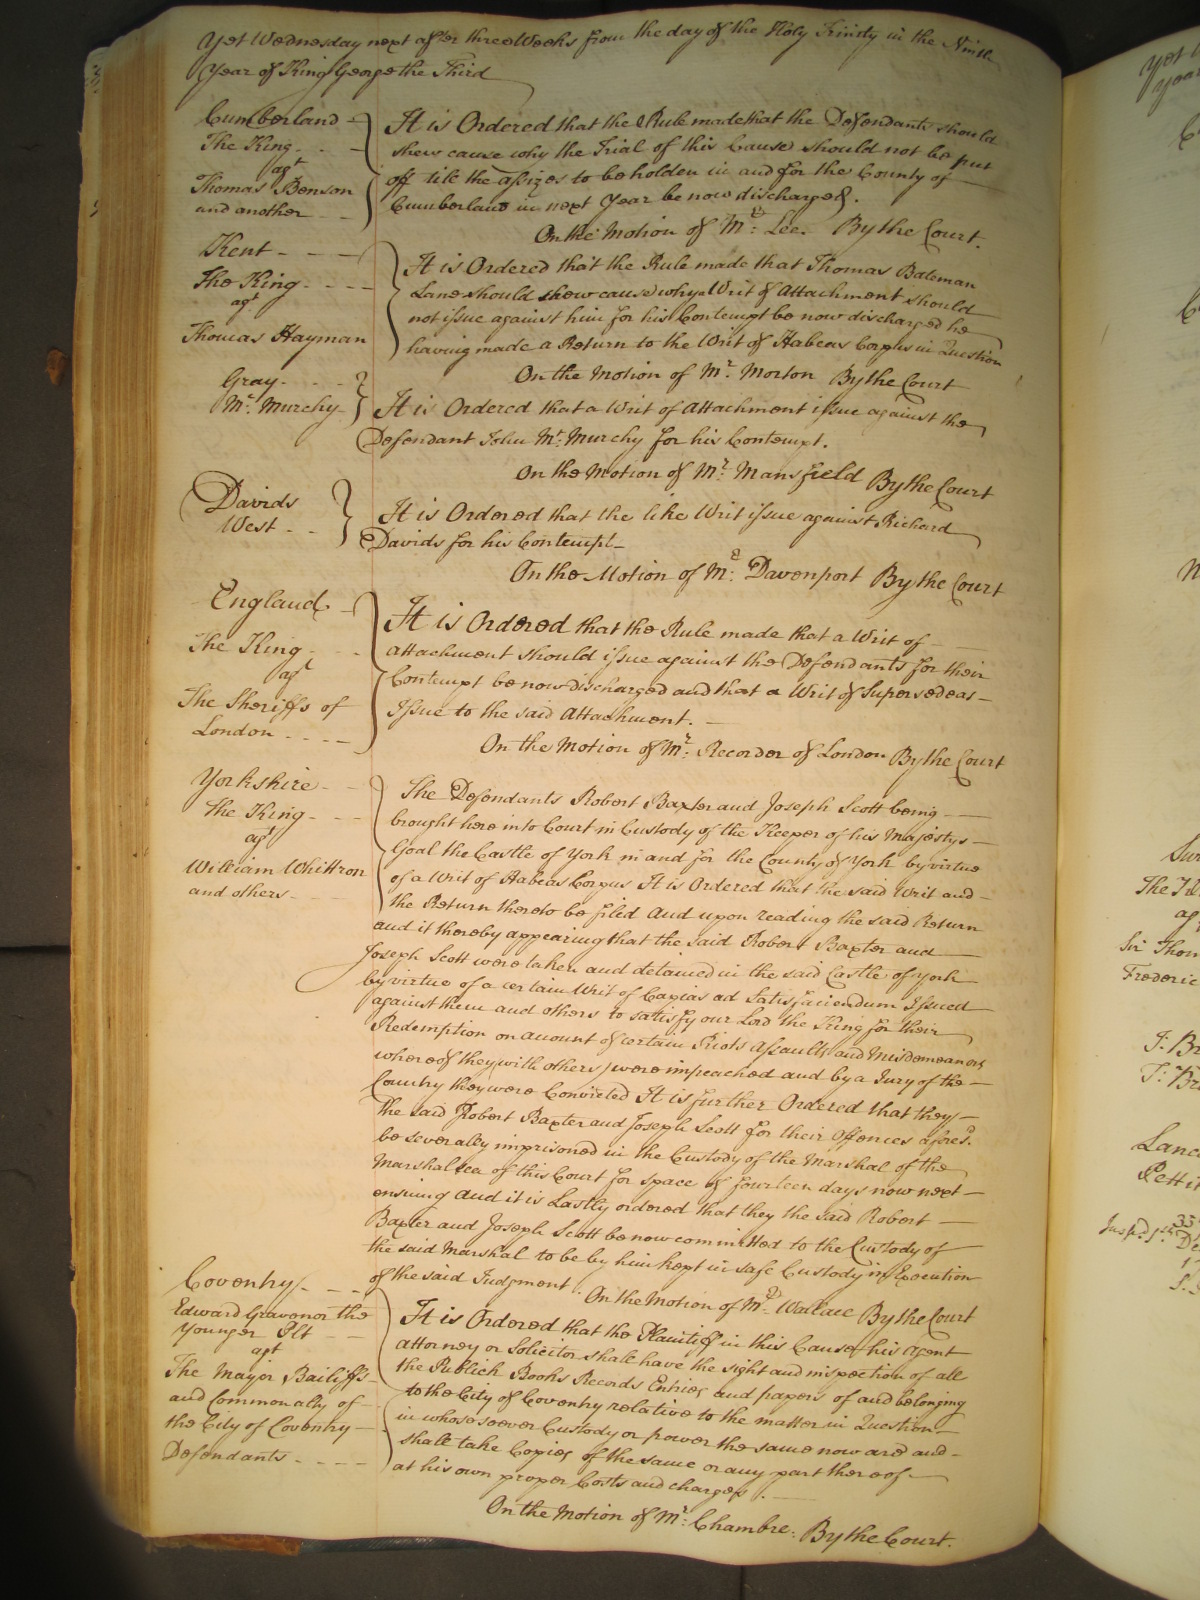 Yet Wednesday next after three Weeks from the day of the Holy Trinity in the Ninth
Year of King George the Third
Cumberland
The King
agt
Thomas Benson
and another
It is Ordered that the Rule made that the Defendants should
shew cause why the Trial of this Cause should not be put
off till the assizes to be holden in and for the County of
Cumberland in next Year be now discharged.
On the Motion of Mr. Lee. By the Court.
Kent
The King
agt
Thomas Hayman
It is Ordered that the Rule made that Thomas Bateman
Lane should shew cause why a Writ of Attachment should
not issue against him for his Contempt be now discharged he
having made a Return to the Writ of Habeas Corpus in Question
On the Motion of Mr. Morton By the Court
Gray
Mc. Murchy
It is Ordered that a Writ of Attachment issue against the
Defendant John Mc. Murchy for his Contempt.
On the Motion of Mr. Mansfield By the Court
Davids
West
It is Ordered that the like Writ issue against Richard
Davids for his Contempt
On the Motion of Mr. Davenport By the Court
England
The King
agt
The Sheriffs of
London
It is Ordered that the Rule made that a Writ of
attachment should issue against the Defendants for their
Contempt be now discharged and that a Writ of Supersedeas
Issue to the said Attachment.
On the Motion of Mr. Recorder of London By the Court
Yorkshire
The King
agt
William Whittron
and others
The Defendants Robert Baxter and Joseph Scott being
brought here into Court in Custody of the Keeper of his Majestys
Goal the Castle of York in and for the County of York by virtue
of a Writ of Habeas Corpus It is Ordered that the said Writ and
the Return thereto be filed And upon reading the said Return
and it thereby appearing that the said Robert Baxter and
Joseph Scott were taken and detained in the said Castle of York
by virtue of a certain Writ of Capias ad Satisfaciendum Issued
against them and others to satisfy our Lord the King for their
Redemption on account of certain Riots assaults and Misdemeanors
whereof they with others were impeached and by a Jury of the
Country they were Convicted It is further Ordered that they
the said Robert Baxter and Joseph Scott for their Offences aforesd.
be severally imprisoned in the Custody of the Marshal of the
Marshalsea of this Court for space of fourteen days now next
ensuing And it is Lastly ordered that they the said Robert
Baxter and Joseph Scott be now committed to the Custody of
the said Marshal to be by him kept in safe Custody in Execution
of the said Judgment. On the Motion of Mr. Wallace By the Court
Coventry
Edward Gravenor the
Younger Plt
agt
The Mayor Bailiffs
and Commonalty of
the City of Coventry
Defendants
It is Ordered that the Plaintiff in this Cause his Agent
attorney or Solicitor shall have the sight and inspection of all
the Publick Books Records Entries and papers of and belonging
to the City of Coventry relative to the matter in Question
in whose soever Custody or power the same now are and
shall take Copies of the same or any part thereof
at his own proper Costs and charges.
On the Motion of Mr. Chambre. By the Court.